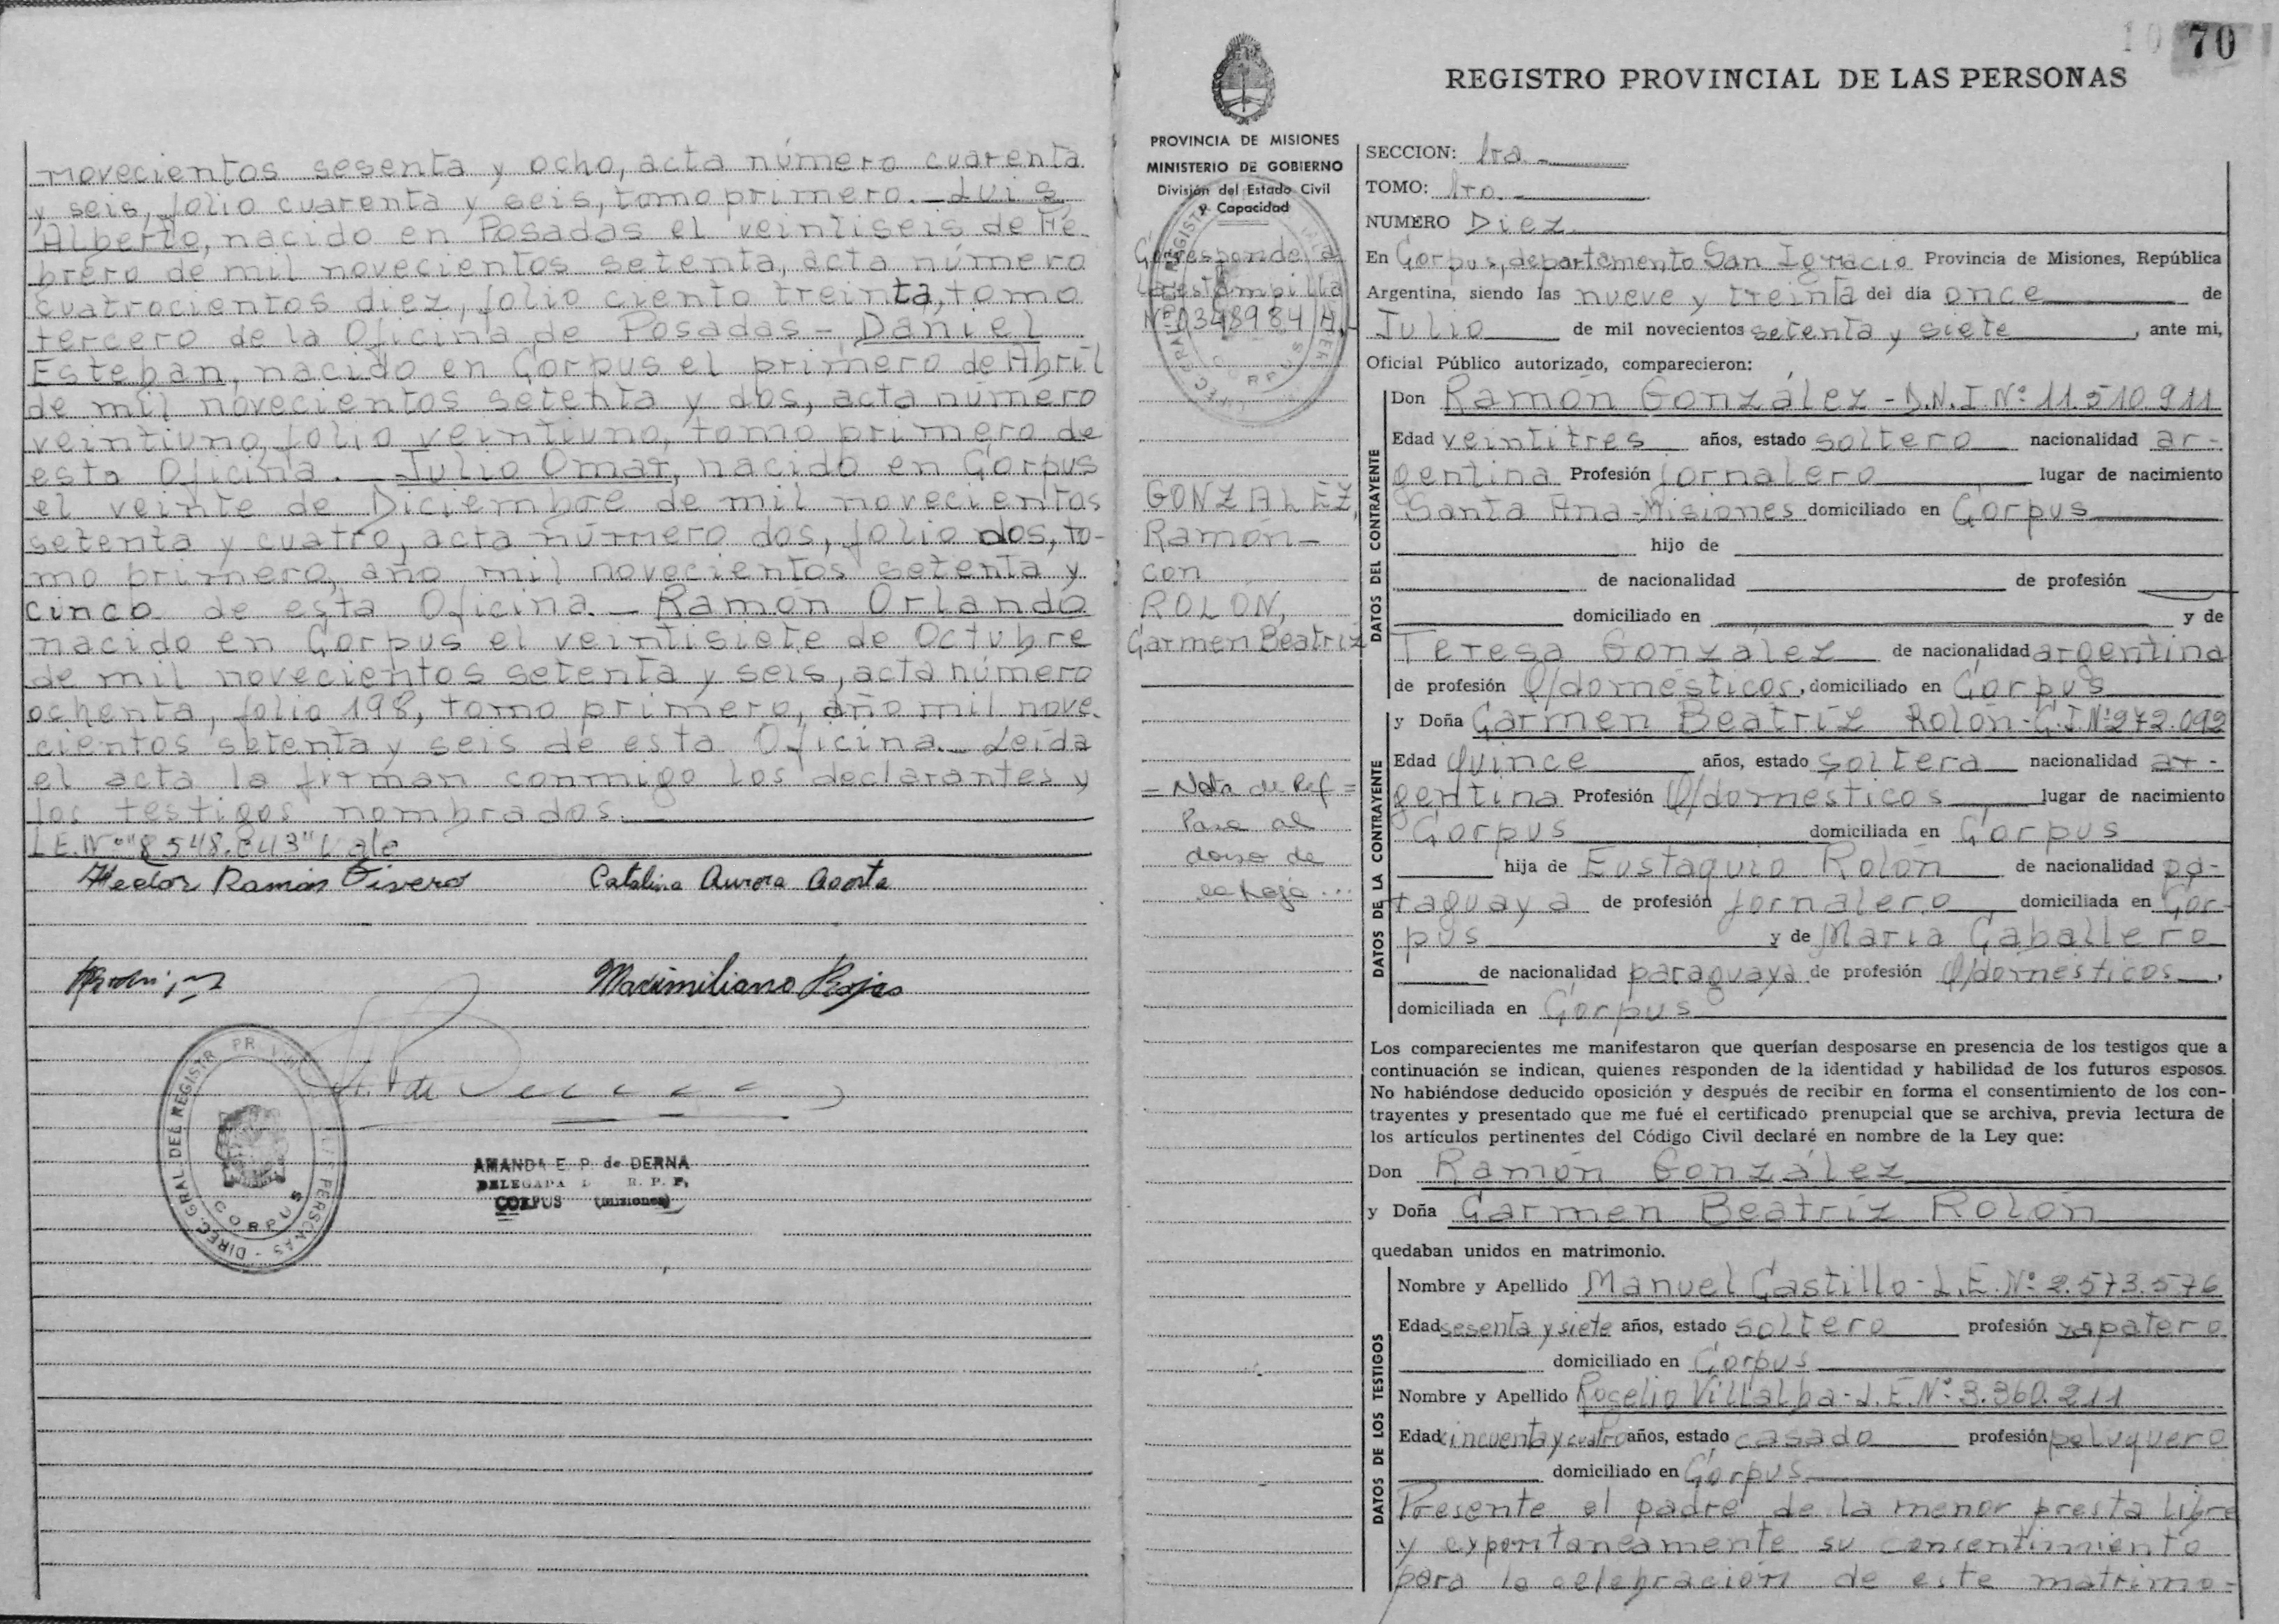 novecientos sesenta y ocho, acta número cuarenta
y seis, folio cuarenta y seis, tomo primero. - Luis
Alberto, nacido en Posadas el veintiseis de Fe-
brero de mil novecientos setenta, acta número
cuatrocientos diez, folio ciento treinta, tomo
tercero de la Oficina de Posadas - Daniel
Esteban, nacido en Corpus el primero de Abril
de mil novecientos setenta y dos, acta número
veintiuno, folio veintiuno, tomo primero de
esta Oficina. - Julio Omar, nacido en Corpus
el veinte de Diciembre de mil novecientos
setenta y cuatro, acta número dos, folio dos, to-
mo primero, año mil novecientos setenta y
cinco de esta Oficina. - Ramón Orlando
nacido en Corpus el veintisiete de Octubre
de mil novecientos setenta y seis, acta número
ochenta, folio 198, tomo primero, año mil nove-
cientos setenta y seis de esta Oficina. - Leída
el acta la firman conmigo los declarantes y
los testigos nombrados.
L.E. Nº "8.548.843" Vale
Hector Ramón Rivero Catalina Aurora Acosta
Maximiliano Rojas
DIREC. GRAL. DEL REGISTR PERSONAS
CORPUS
AMANDA E. P. de DERNA
DELEGADA R. P. P.
CORPUS (Misiones)
70
REGISTRO PROVINCIAL DE LAS PERSONAS
PROVINCIA DE MISIONES
MINISTERIO DE GOBIERNO
División del Estado Civil
y Capacidad
Corresponde a
la estampilla
Nº 0348984 A.-
GONZALEZ,
Ramón -
con
ROLON,
Carmen Beatriz
= Nota de Ref =
Pasa al
dorso de
la hoja ...
SECCION: 1ra -
TOMO: 1ro. -
NUMERO Diez
En Corpus, departamento San Ignacio Provincia de Misiones, República
Argentina, siendo las nueve y treinta del día once de
Julio de mil novecientos setenta y siete, ante mi,
Oficial Público autorizado, comparecieron:
DATOS DEL CONTRAYENTE
Don Ramón González - D.N.I. Nº 11.510.911
Edad veintitres años, estado soltero nacionalidad ar-
gentina Profesión Jornalero lugar de nacimiento
Santa Ana - Misiones domiciliado en Corpus
hijo de
de nacionalidad de profesión
domiciliado en y de
Teresa González de nacionalidad argentina
de profesión Q/domésticos, domiciliado en Corpus
DATOS DE LA CONTRAYENTE
y Doña Carmen Beatríz Rolón - C.I. Nº 272.092
Edad Quince años, estado soltera nacionalidad ar-
gentina Profesión Q/domésticos lugar de nacimiento
Corpus domiciliada en Corpus
hija de Eustaquio Rolón de nacionalidad pa-
raguaya de profesión Jornalero domiciliada en Cor-
pus y de María Caballero
de nacionalidad paraguaya de profesión Q/domésticos,
domiciliada en Corpus
Los comparecientes me manifestaron que querían desposarse en presencia de los testigos que a
continuación se indican, quienes responden de la identidad y habilidad de los futuros esposos.
No habiéndose deducido oposición y después de recibir en forma el consentimiento de los con-
trayentes y presentado que me fué el certificado prenupcial que se archiva, previa lectura de
los artículos pertinentes del Código Civil declaré en nombre de la Ley que:
Don Ramón González
y Doña Carmen Beatríz Rolón
quedaban unidos en matrimonio.
DATOS DE LOS TESTIGOS
Nombre y Apellido Manuel Castillo - L.E. Nº 2.573.576
Edad sesenta y siete años, estado soltero profesión zapatero
domiciliado en Corpus
Nombre y Apellido Rogelio Villalba - L.E. Nº 3.360.211
Edad cincuenta y cuatro años, estado casado profesión peluquero
domiciliado en Corpus
Presente el padre de la menor presta libre
y expontaneamente su consentimiento
para la celebración de este matrimo-